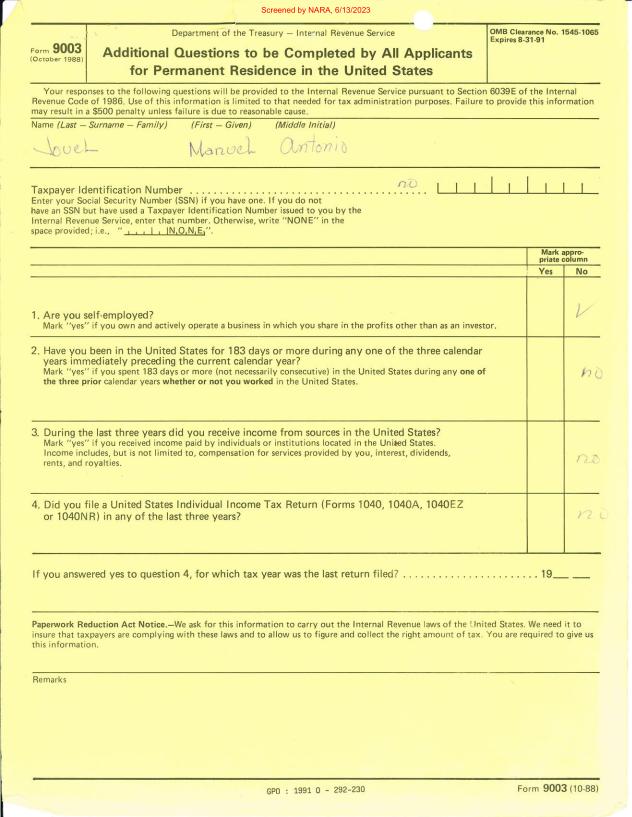 Screened by NARA, 6/13/2023
Department of the Treasury — Internal Revenue Service
OMB Clearance No. 1545-1065
Expires 8-31-91
Form 9003
(October 1988)
Additional Questions to be Completed by All Applicants
for Permanent Residence in the United States
Your responses to the following questions will be provided to the Internal Revenue Service pursuant to Section 6039E of the Internal
Revenue Code of 1986. Use of this information is limited to that needed for tax administration purposes. Failure to provide this information
may result in a $500 penalty unless failure is due to reasonable cause.
Name (Last — Surname — Family) (First — Given) (Middle Initial)
Jouel Manuel Antonio
Taxpayer Identification Number .................................... no
Enter your Social Security Number (SSN) if you have one. If you do not
have an SSN but have used a Taxpayer Identification Number issued to you by the
Internal Revenue Service, enter that number. Otherwise, write "NONE" in the
space provided; i.e., " N,O,N,E,".
Mark appro-
priate column
Yes No
1. Are you self-employed? ✓
Mark "yes" if you own and actively operate a business in which you share in the profits other than as an investor.
2. Have you been in the United States for 183 days or more during any one of the three calendar
years immediately preceding the current calendar year? no
Mark "yes" if you spent 183 days or more (not necessarily consecutive) in the United States during any one of
the three prior calendar years whether or not you worked in the United States.
3. During the last three years did you receive income from sources in the United States? no
Mark "yes" if you received income paid by individuals or institutions located in the United States.
Income includes, but is not limited to, compensation for services provided by you, interest, dividends,
rents, and royalties.
4. Did you file a United States Individual Income Tax Return (Forms 1040, 1040A, 1040EZ
or 1040NR) in any of the last three years? no
If you answered yes to question 4, for which tax year was the last return filed? ........................ 19__ __
Paperwork Reduction Act Notice.—We ask for this information to carry out the Internal Revenue laws of the United States. We need it to
insure that taxpayers are complying with these laws and to allow us to figure and collect the right amount of tax. You are required to give us
this information.
Remarks
GPO : 1991 O - 292-230
Form 9003 (10-88)